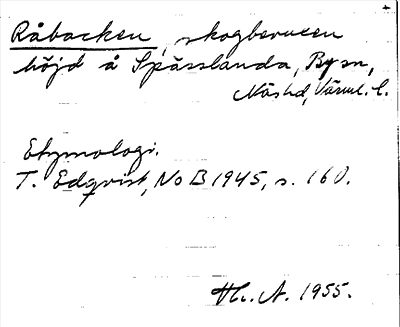 Råbacken, skogbevuxen
höjd å Spässlanda, By sn,
Näshd, Värml. l.
Etymologi.
T. Edqvist, NoB 1945, s. 160.
1955.